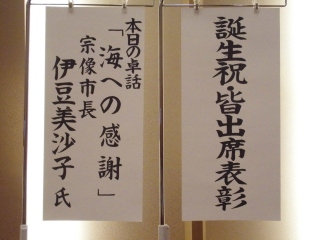 誕生祝・皆出席表彰
本日の卓話
「海への感謝」
宗像市長
伊豆美沙子 氏